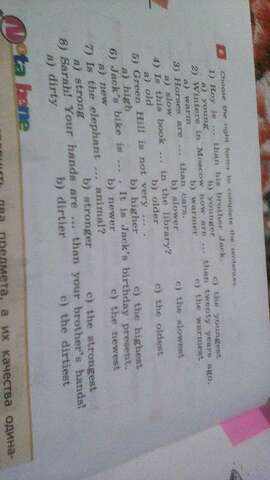 Choose the right items to complete the sentences.
1) Roy is ... than his brother Jack.
a) young b) younger c) the youngest
2) Winters in Moscow now are ... than twenty years ago.
a) warm b) warmer c) the warmest
3) Horses are ... than cars.
a) slow b) slower c) the slowest
4) Is this book ... in the library?
a) old b) older c) the oldest
5) Green Hill is not very ... .
a) high b) higher c) the highest
6) Jack's bike is ... . It is Jack's birthday present.
a) new b) newer c) the newest
7) Is the elephant ... animal?
a) strong b) stronger c) the strongest
8) Sarah! Your hands are ... than your brother's hands!
a) dirty b) dirtier c) the dirtiest
Nota bene
два предмета, а их качества одина-